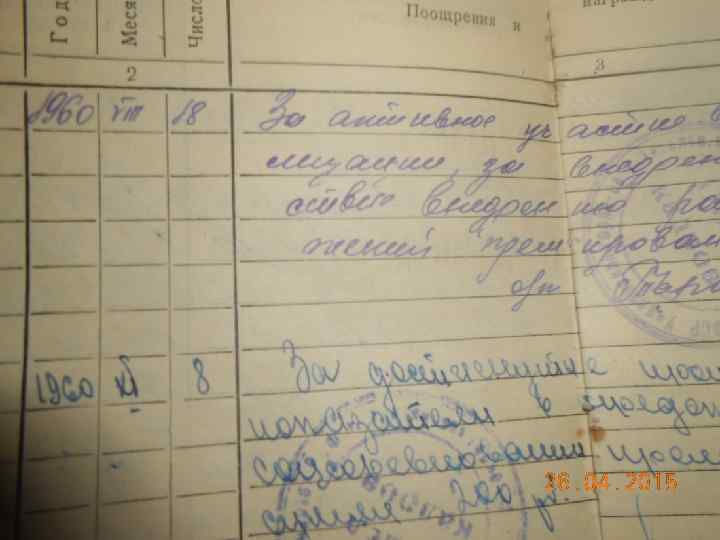 Год Месяц Число Поощрения и
2 3
1960 VIII 18 За активное участие в
лизации, за внедрен
ствие внедрению ра
жений премирован
от
1960 XI 8 За достигнутые прои
показатели в предок
соцсоревновании прем
сумме 200 р.
26.04.2015